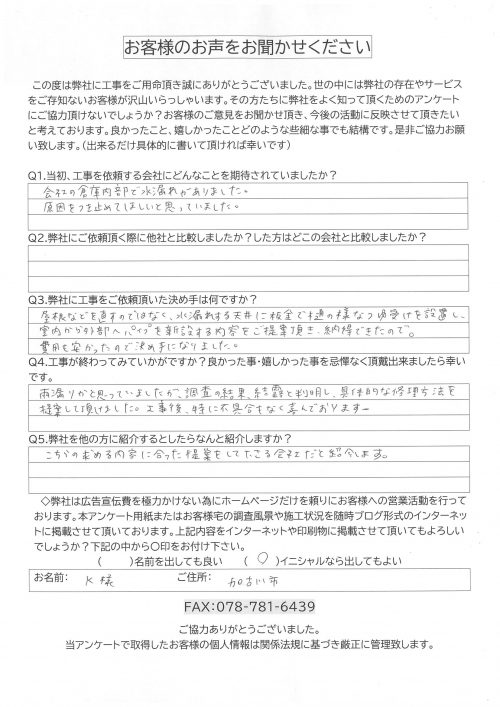 お客様のお声をお聞かせください
この度は弊社に工事をご用命頂き誠にありがとうございました。世の中には弊社の存在やサービス
をご存知ないお客様が沢山いらっしゃいます。その方たちに弊社をよく知って頂くためのアンケート
にご協力頂けないでしょうか？お客様のご意見をお聞かせ頂き、今後の活動に反映させて頂きたい
と考えております。良かったこと、嬉しかったことどのような些細な事でも結構です。是非ご協力お願
い致します。（出来るだけ具体的に書いて頂ければ幸いです）
Q1.当初、工事を依頼する会社にどんなことを期待されていましたか？
会社の倉庫内部で水漏れがありました。
原因をつき止めてほしいと思っていました。
Q2.弊社にご依頼頂く際に他社と比較しましたか？した方はどこの会社と比較しましたか？
Q3.弊社に工事をご依頼頂いた決め手は何ですか？
屋根などを直すのではなく、水漏れする天井に板金で樋の様な受けを設置し、
室内から外部へパイプを新設する内容をご提案頂き、納得できたので。
費用も安かったので決め手になりました。
Q4.工事が終わってみていかがですか？良かった事・嬉しかった事を忌憚なく頂戴出来ましたら幸い
です。
雨漏りかと思っていましたが、調査の結果、結露と判明し、具体的な修理方法を
提案して頂けました。工事後、特に不具合もなく喜んでおります。
Q5.弊社を他の方に紹介するとしたらなんと紹介しますか？
こちらの求める内容に合った提案をして下さる会社だと紹介します。
◇弊社は広告宣伝費を極力かけない為にホームページだけを頼りにお客様への営業活動を行って
おります。本アンケート用紙またはお客様宅の調査風景や施工状況を随時ブログ形式のインターネッ
トに掲載させて頂いております。上記内容をインターネットや印刷物に掲載させて頂いてもよろしい
でしょうか？下記の中から〇印をお付け下さい。
（　　）名前を出しても良い　（ ○ ）イニシャルなら出してもよい
お名前：　K 様　ご住所：　加古川市
FAX：078-781-6439
ご協力ありがとうございました。
当アンケートで取得したお客様の個人情報は関係法規に基づき厳正に管理致します。